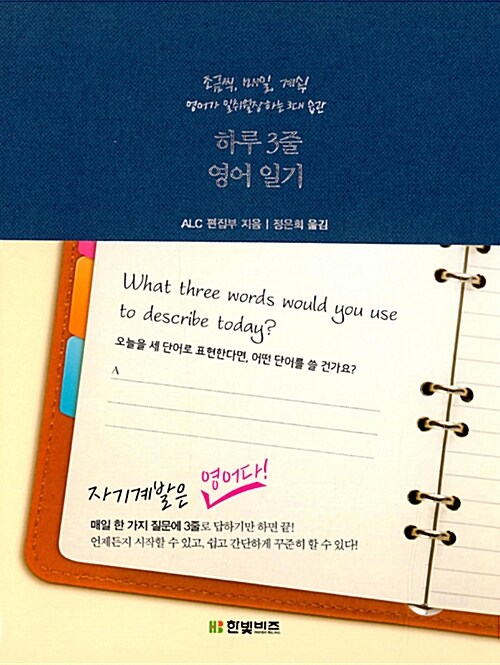 조금씩, 매일, 계속
영어가 일취월장하는 3대 습관
하루 3줄
영어 일기
ALC 편집부 지음 | 정은희 옮김
What three words would you use
to describe today?
오늘을 세 단어로 표현한다면, 어떤 단어를 쓸 건가요?
A
자기계발은 영어다!
매일 한 가지 질문에 3줄로 답하기만 하면 끝!
언제든지 시작할 수 있고, 쉽고 간단하게 꾸준히 할 수 있다!
HB 한빛비즈